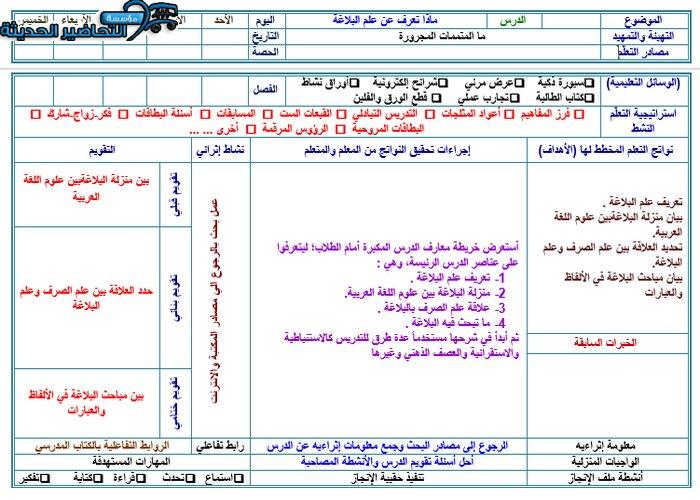 الموضوع
الدرس
ماذا تعرف عن علم البلاغة
اليوم
الأحد
الأربعاء
الخميس
التهيئة والتمهيد
ما المتممات المجرورة
التاريخ
مصادر التعلّم
الحصة
مؤسسة
التحاضير الحديثة
(الوسائل التعليمية)
سبورة ذكية
عرض مرئي
شرائح إلكترونية
أوراق نشاط
كتاب الطالبة
تجارب عملي
قطع الورق والفلين
الفصل
استراتيجية التعلّم النشط
فرز المفاهيم
أعواد المثلجات
التدريس التبادلي
القبعات الست
المسابقات
أسئلة البطاقات
فكر-زواج-شارك
البطاقات المروحية
الرؤوس المرقمة
أخرى ... ...
نواتج التعلم المخطط لها (الأهداف)
إجراءات تحقيق النواتج من المعلم والمتعلم
نشاط إثرائي
التقويم
تعريف علم البلاغة .
بيان منزلة البلاغةبين علوم اللغة
العربية.
تحديد العلاقة بين علم الصرف وعلم
البلاغة.
بيان مباحث البلاغة في الألفاظ
والعبارات
الخبرات السابقة
أستعرض خريطة معارف الدرس المكبرة أمام الطلاب؛ ليتعرفوا
على عناصر الدرس الرئيسة، وهي :
1- تعريف علم البلاغة .
2- منزلة البلاغة بين علوم اللغة العربية.
3- علاقة علم الصرف بالبلاغة .
4- ما تبحث فيه البلاغة .
ثم أبدأ في شرحها مستخدماً عدة طرق للتدريس كالاستنباطية
والاستقرائية والعصف الذهني وغيرها
عمل بحث بالرجوع الي مصادر المكتبة والانترنت
تقويم قبلي
بين منزلة البلاغةبين علوم اللغة
العربية
تقويم بنائي
حدد العلاقة بين علم الصرف وعلم
البلاغة
تقويم ختامي
بين مباحث البلاغة في الألفاظ
والعبارات
معلومة إثراءيه
الرجوع إلى مصادر البحث وجمع معلومات إثراءيه عن الدرس
رابط تفاعلي
الروابط التفاعلية بالكتاب المدرسي
الواجبات المنزلية
أحل أسئلة تقويم الدرس والأنشطة المصاحبة
المهارات المستهدفة
أنشطة ملف الإنجاز
تنفيذ حقيبة الإنجاز
استماع
تحدث
قراءة
كتابة
تفكير